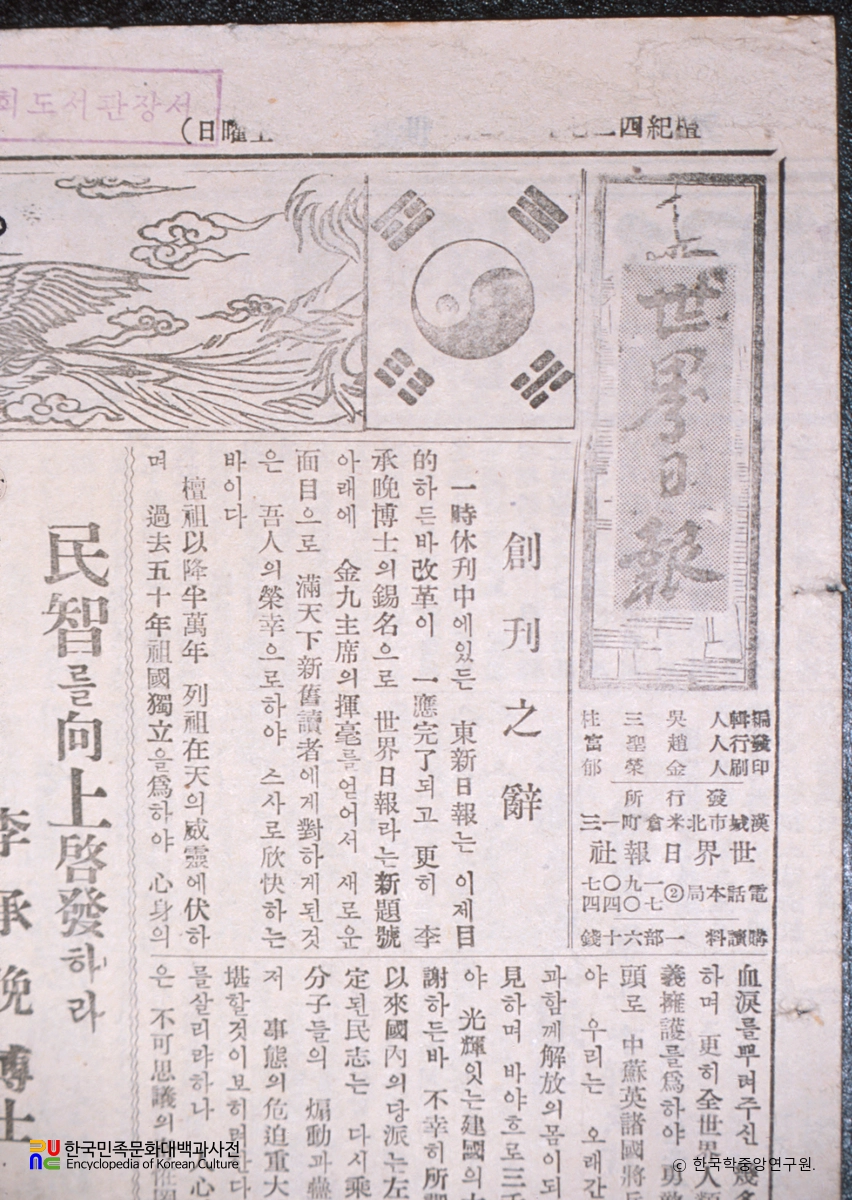 회도서관장서
檀紀四二
曜日)
世界日報
創刊之辭
一時休刊中에있든 東新日報는 이제目
的하든바改革이 一應完了되고 更히 李
承晩博士의錫名으로 世界日報라는新題號
아래에 金九主席의揮毫를얻어서 새로운
面目으로 滿天下新舊讀者에게對하게된것
은 吾人의榮幸으로하야 스사로欣快하는
바이다
檀祖以降半萬年 列祖在天의威靈에伏하
며 過去五十年祖國獨立을爲하야 心身의
民智를向上啓發하라
李承晩博士
編輯人 吳三柱
發行人 趙聖富
印刷人 金榮郁
發行所
漢城市北米倉町一三
世界日報社
電話本局②
購讀料一部六十錢
血淚를뿌려주신
하며 更히全世界人類
義擁護를爲하야 勇
頭로 中蘇英諸國將兵
야 우리는 오래간
과함께解放의몸이되
見하며 바야흐로三千
야 光輝잇는建國의
謝하든바 不幸히所
以來國內의당派는左
定된民志는 다시乘
分子들의 煽動과
저 事態의危迫重大
堪할것이보히려한다
를살리랴하나 心
은 不可思議의
한국민족문화대백과사전
Encyclopedia of Korean Culture
© 한국학중앙연구원.